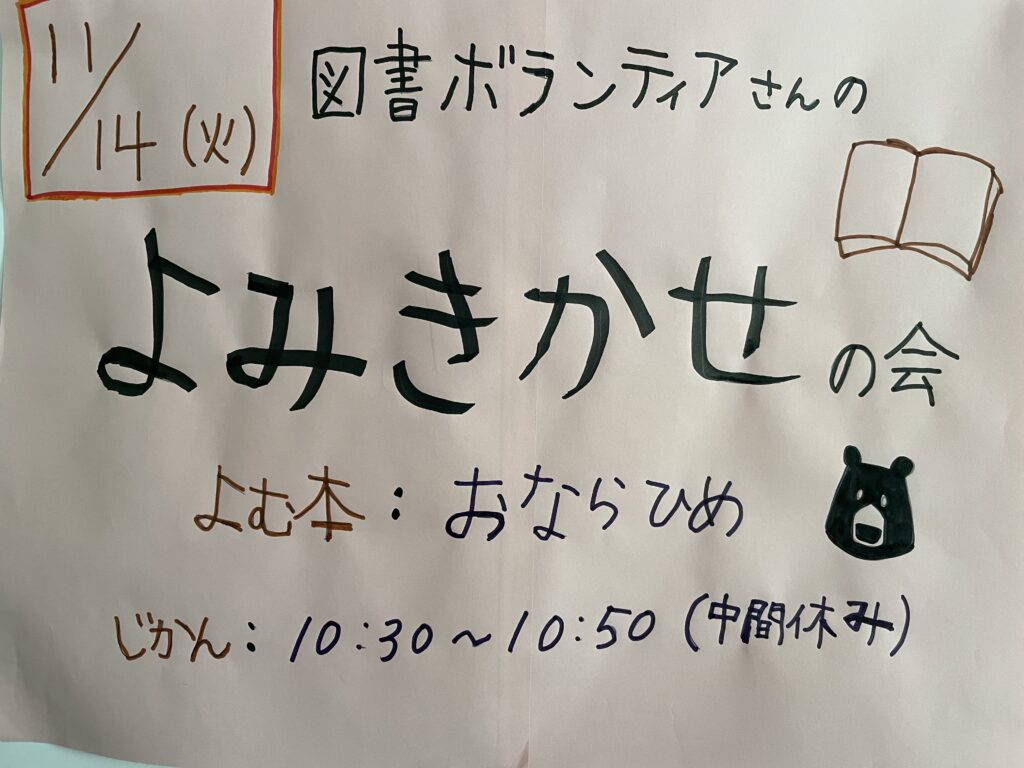 11/14(火)
図書ボランティアさんの
よみきかせの会
よむ本：おならひめ
じかん：10:30～10:50(中間休み)